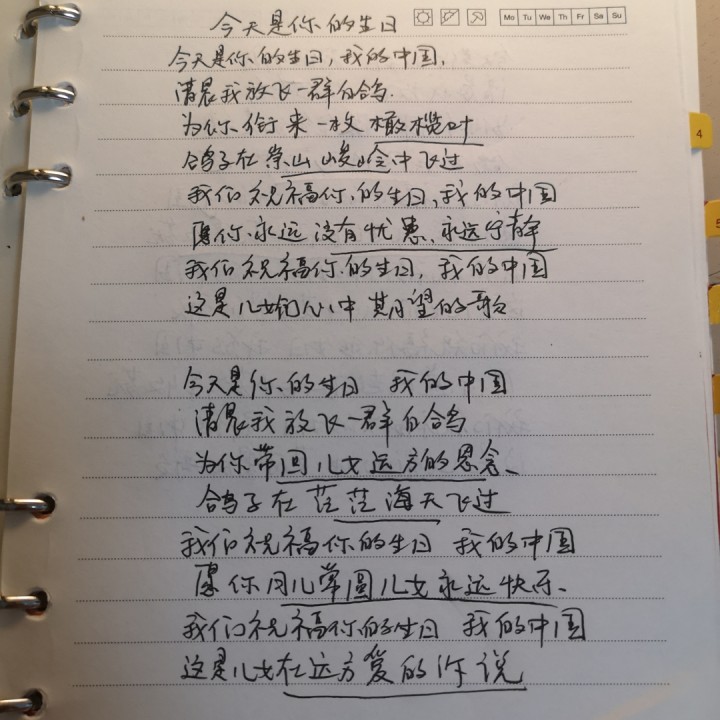 今天是你的生日
Mo Tu We Th Fr Sa Su
今天是你的生日,我的中国.
清晨我放飞一群白鸽.
为你衔来一枚橄榄叶
4
鸽子在崇山峻岭中飞过
我们祝福你的生日,我的中国
5
愿你永远没有忧患、永远宁静
我们祝福你的生日,我的中国
这是儿女们心中期望的歌
今天是你的生日 我的中国
清晨我放飞一群白鸽
为你带回儿女远方的思念、
鸽子在茫茫海天飞过
我们祝福你的生日 我的中国
愿你月儿常圆儿女永远快乐、
我们祝福你的生日 我的中国
这是儿女在远方爱的你说